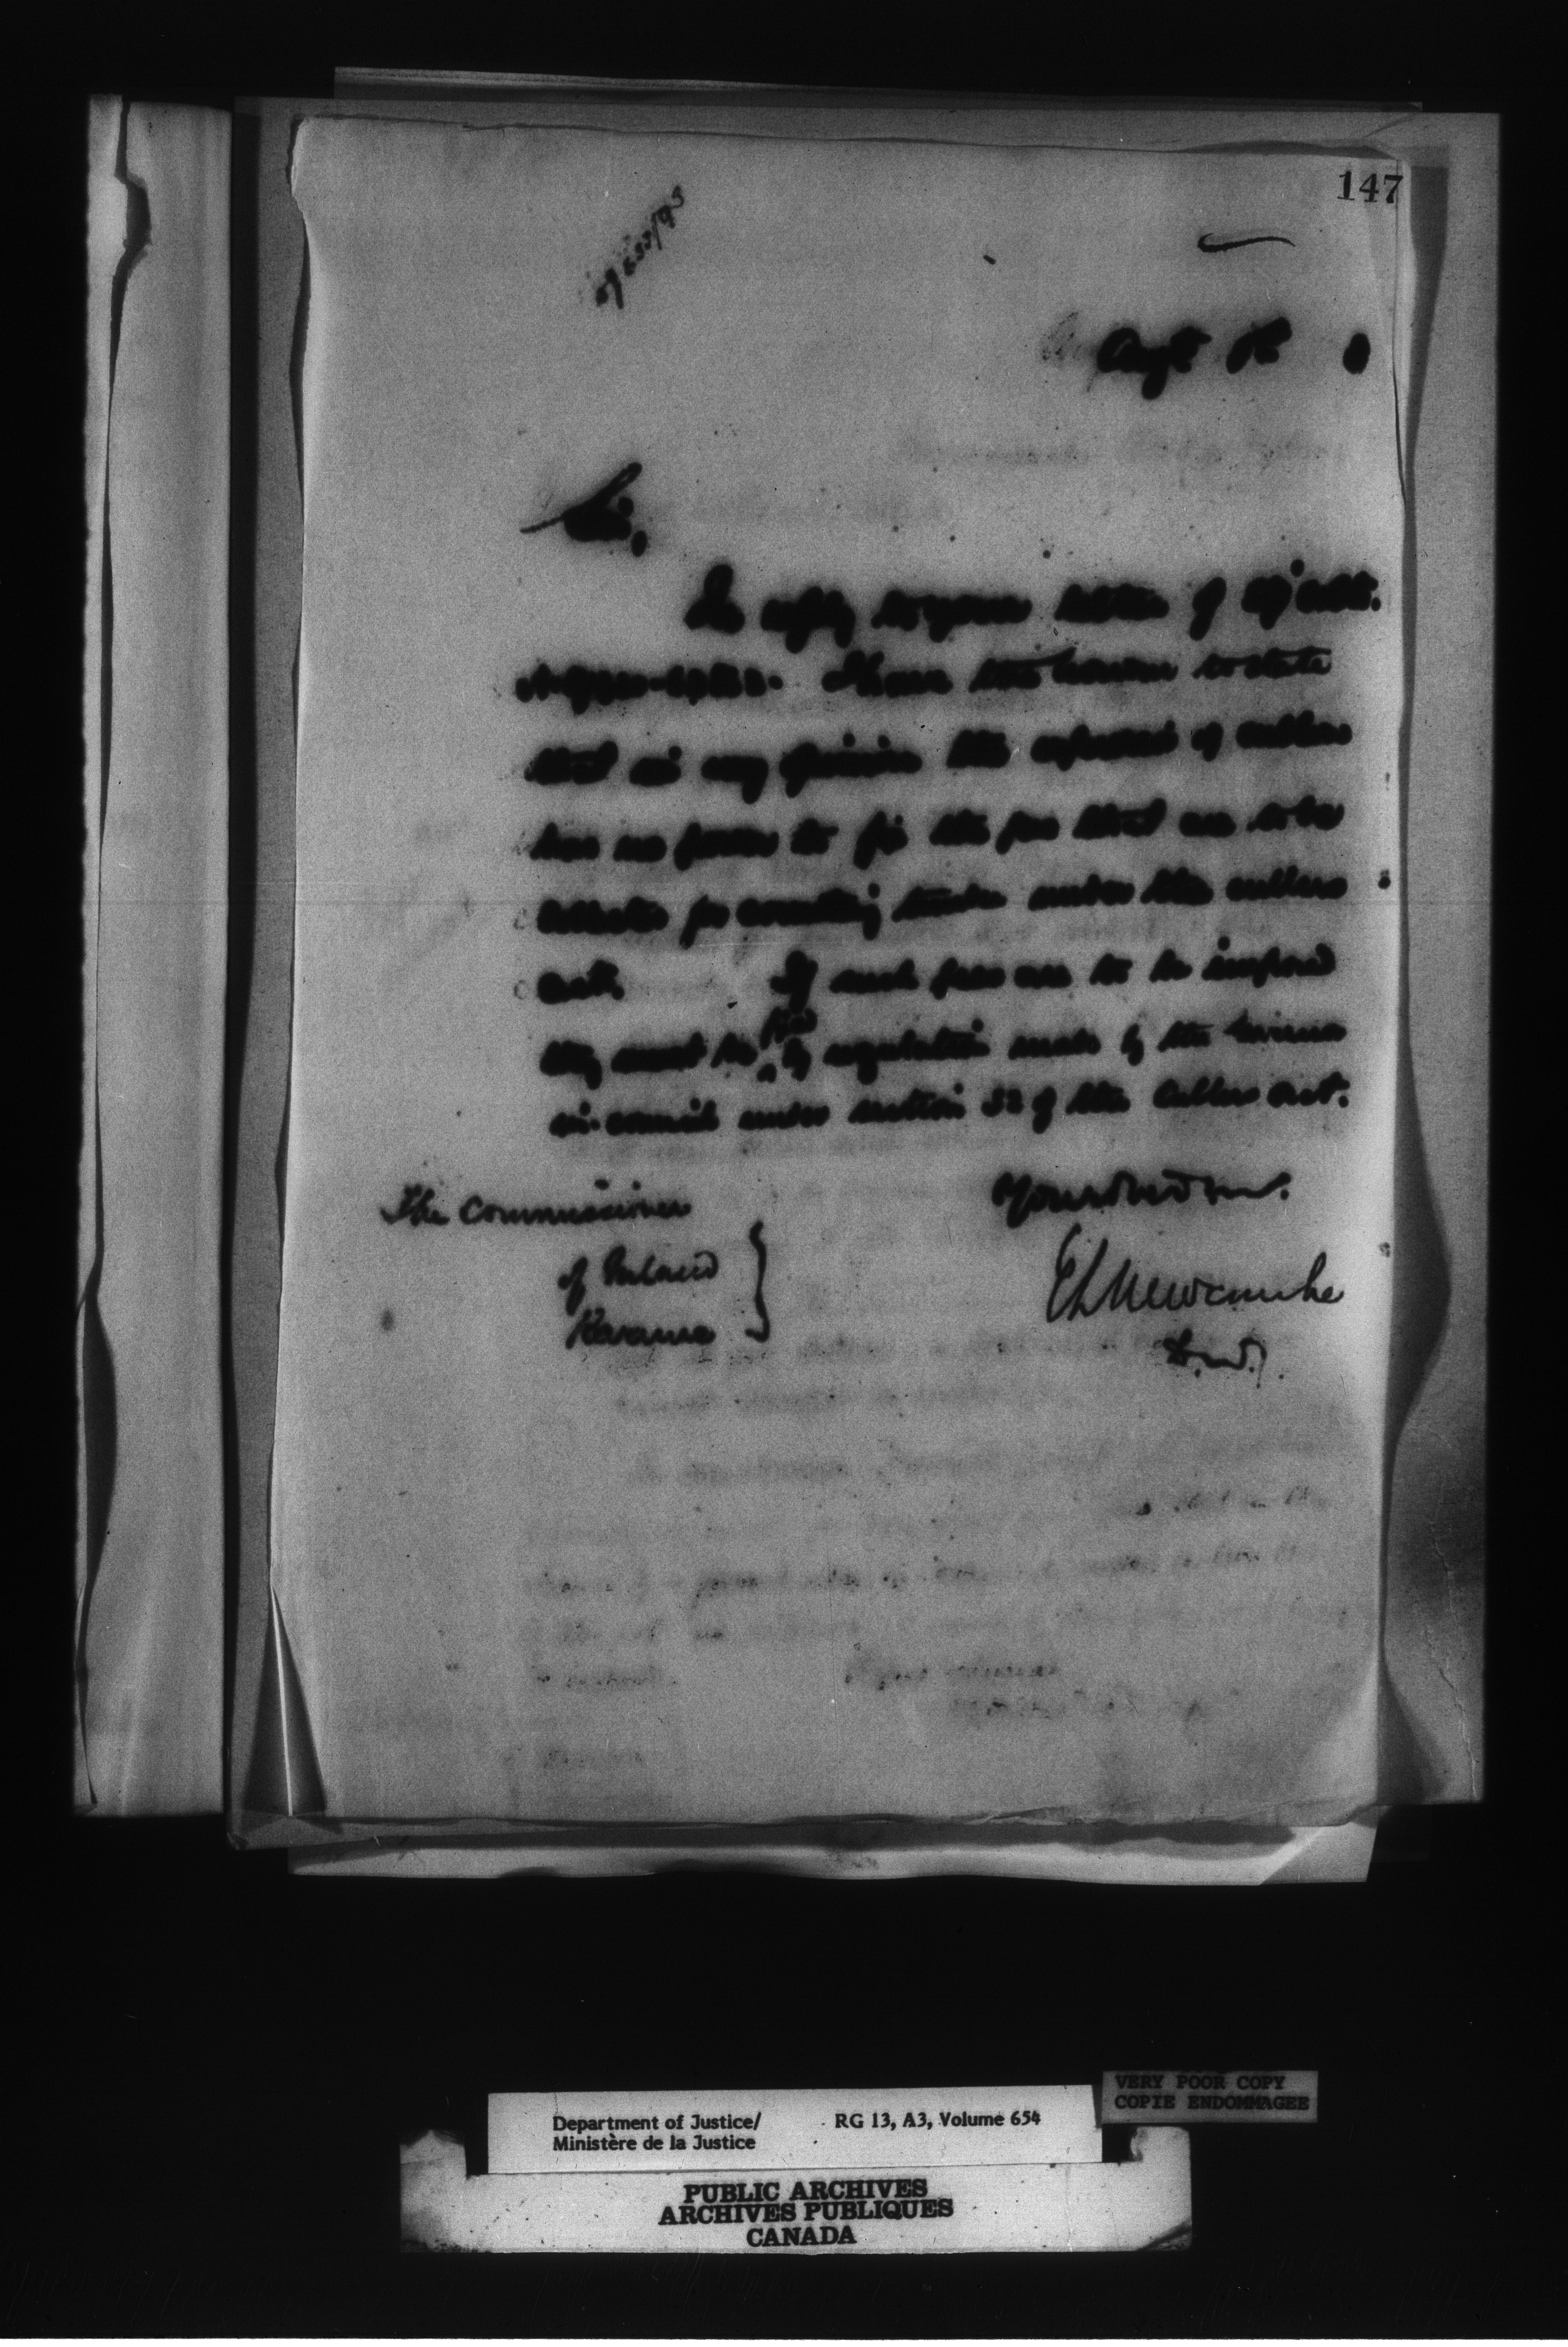 147
Augt
Sir,
In reply to your letter of
I have the honour to state
that in my opinion the of cullers
has no power to fix the fees that are to be
collected for counting timber under the cullers
act. If such fees are to be imposed
they must be fixed by regulation made by the
in council under section 32 of the Cullers act.
The Commissioner
of Inland
Revenue
Your obed serv.
E L Newcombe
D.M.J.
VERY POOR COPY
COPIE ENDOMMAGEE
Department of Justice/
Ministère de la Justice
RG 13, A3, Volume 654
PUBLIC ARCHIVES
ARCHIVES PUBLIQUES
CANADA